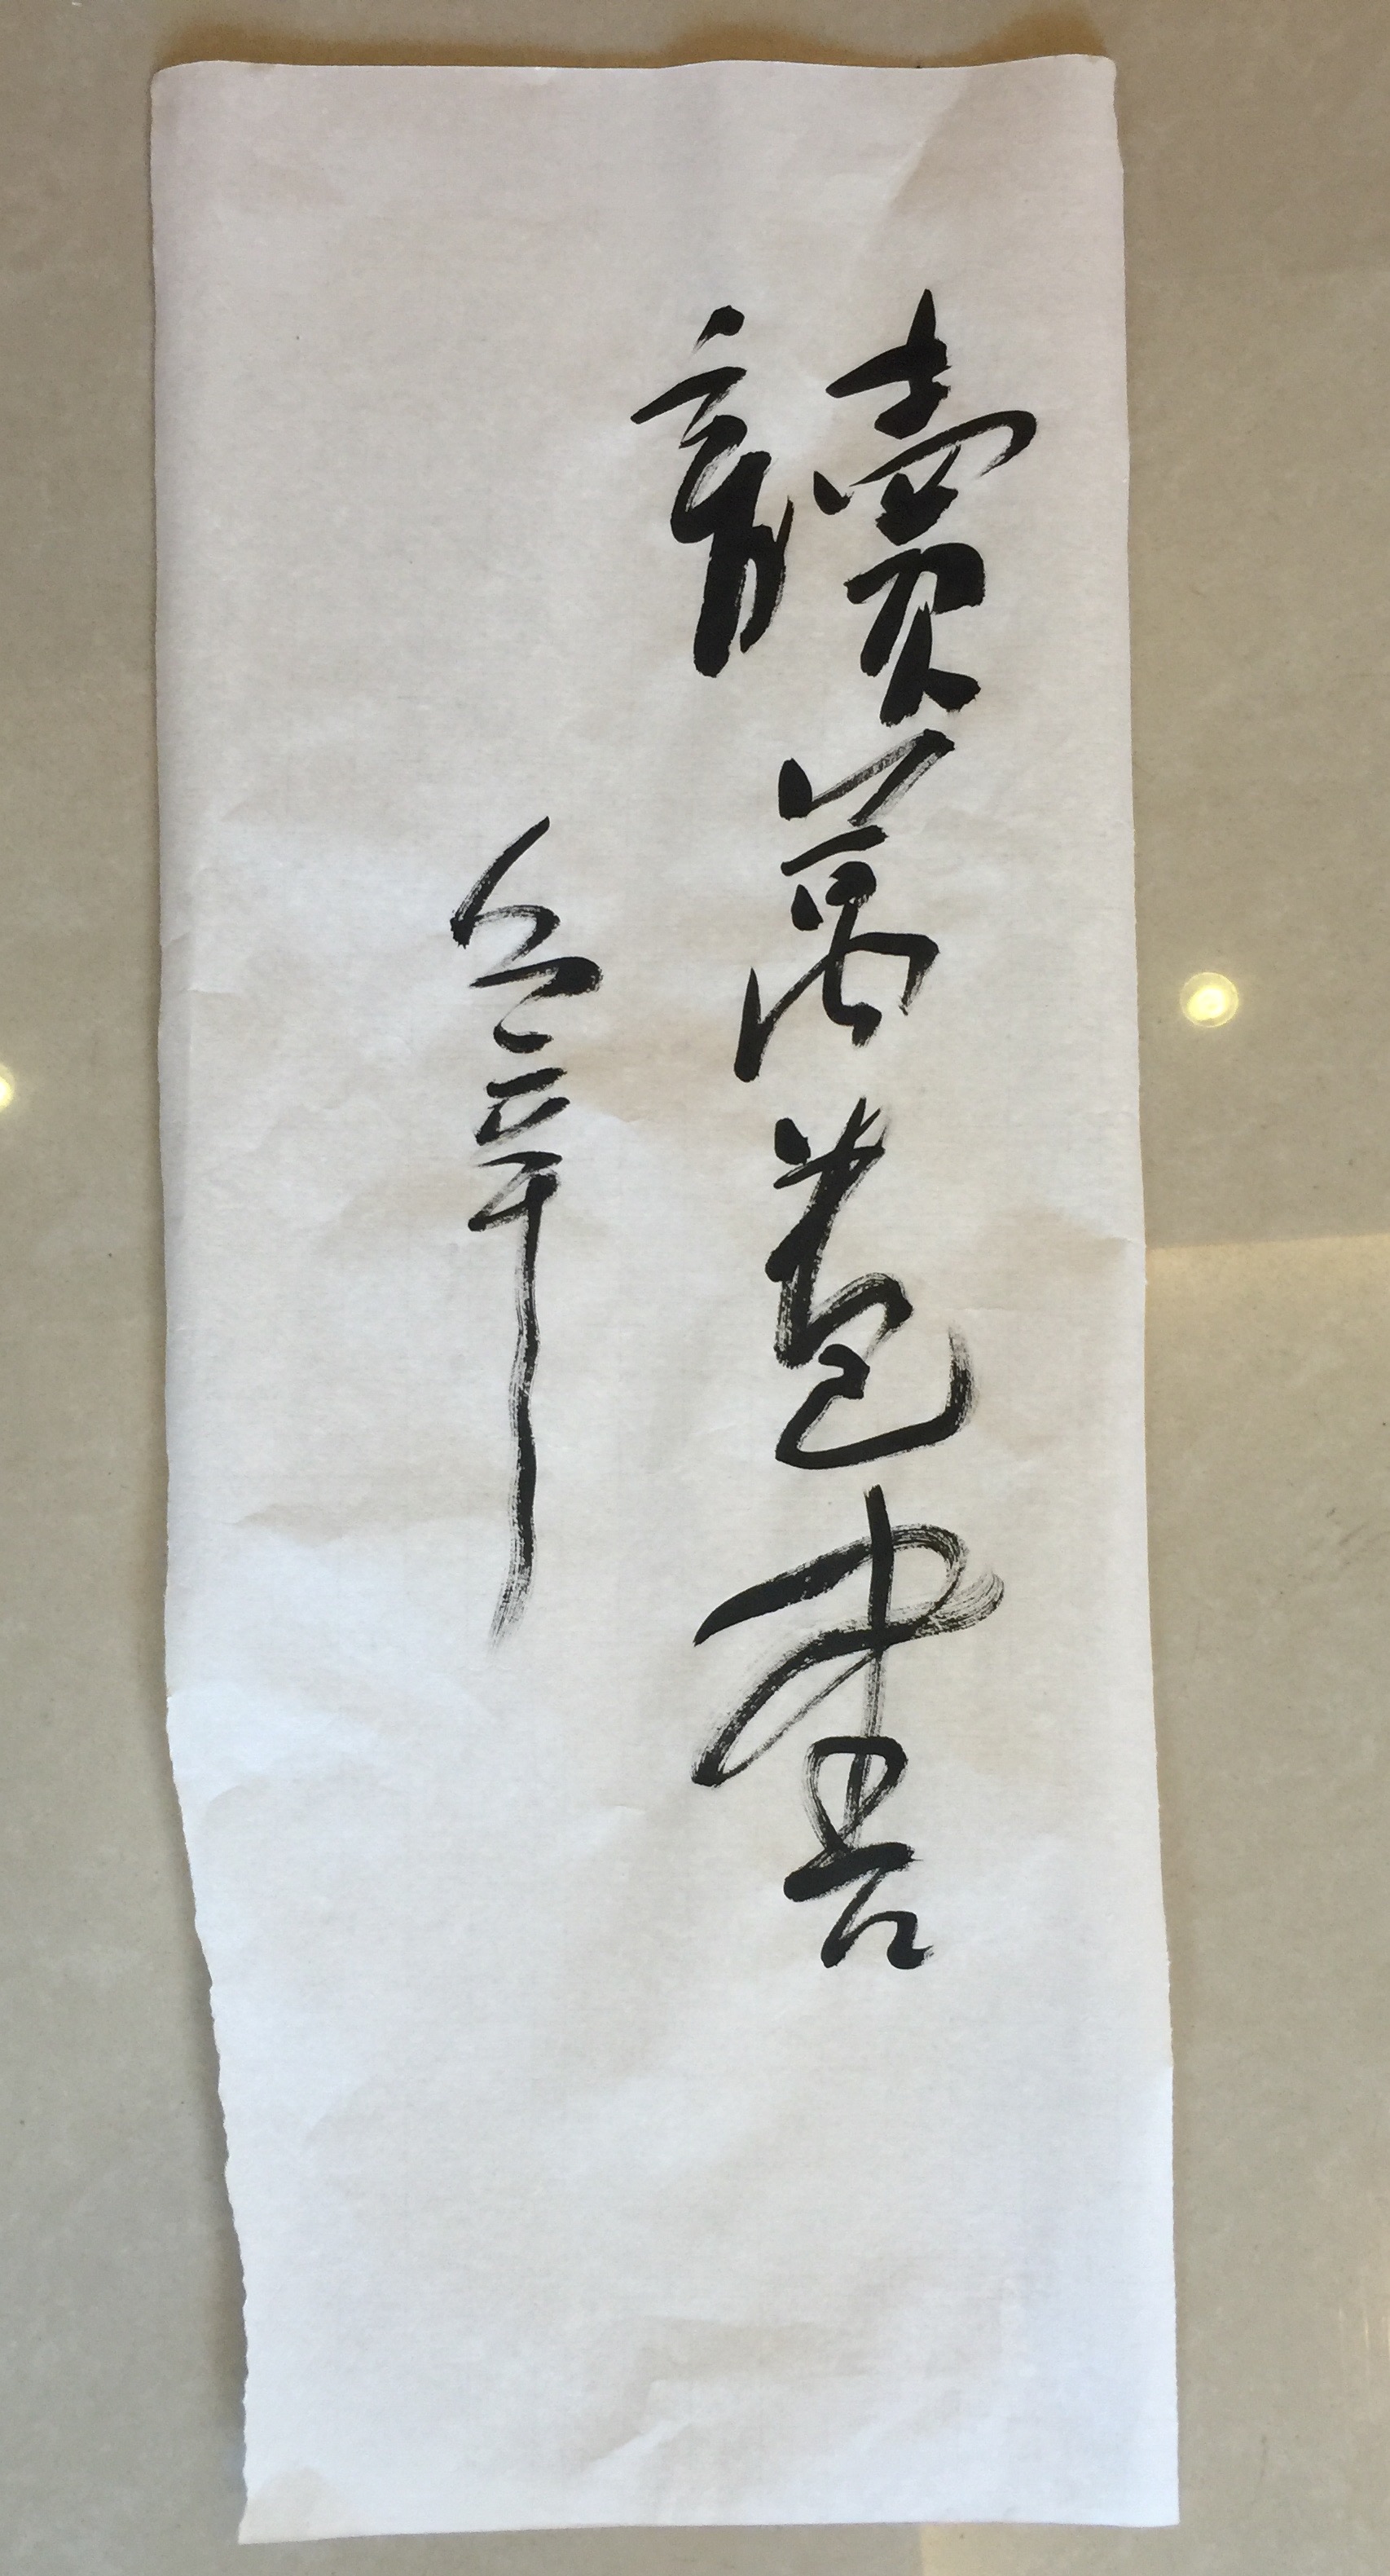 讀萬卷書